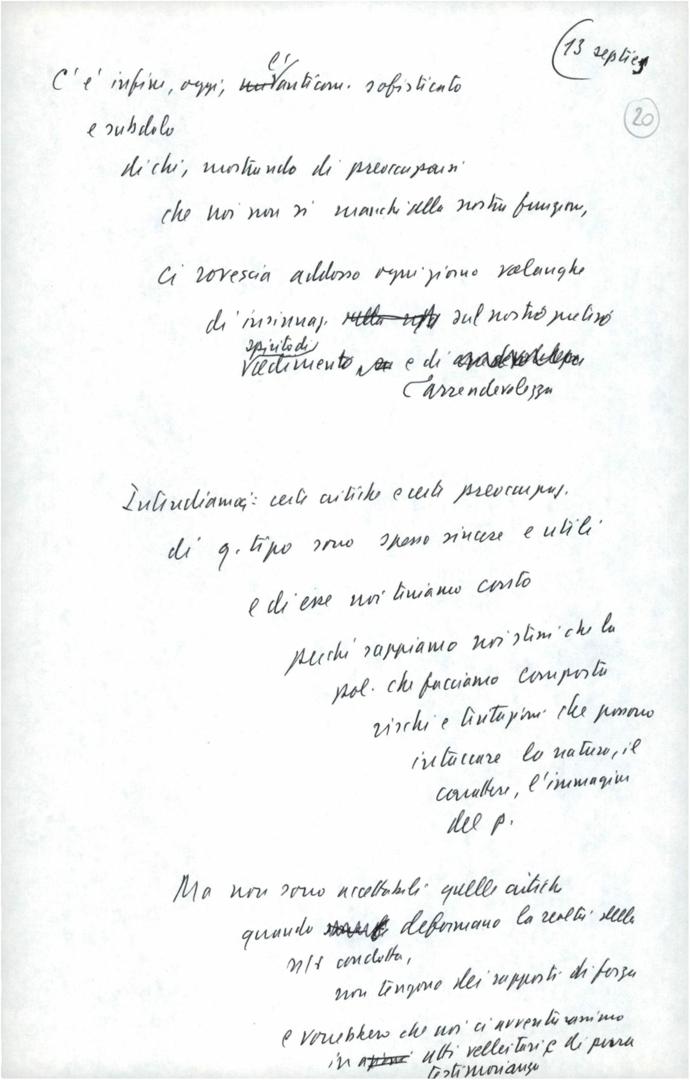 (13 septies
20
C'è infine, oggi, c'è l'anticom. sofisticato
e subdolo
di chi, mostrando di preoccuparsi
che noi non si manchi alla nostra funzione,
ci rovescia addosso ogni giorno valanghe
di insinuaz. sul nostro preteso
spirito di
cedimento e di
arrendevolezza
Intendiamoci: certe critiche e certe preoccupaz.
di q. tipo sono spesso sincere e utili
e di esse noi teniamo conto
perché sappiamo noi stessi che la
pol. che facciamo comporta
rischi e tentazioni che possono
intaccare la natura, il
carattere, l'immagine
del p.
Ma non sono accettabili quelle critiche
quando deformano la realtà della
n/s condotta,
non tengono dei rapporti di forza
e vorrebbero che noi ci avventurassimo
in atti velleitari e di pura
testimonianza